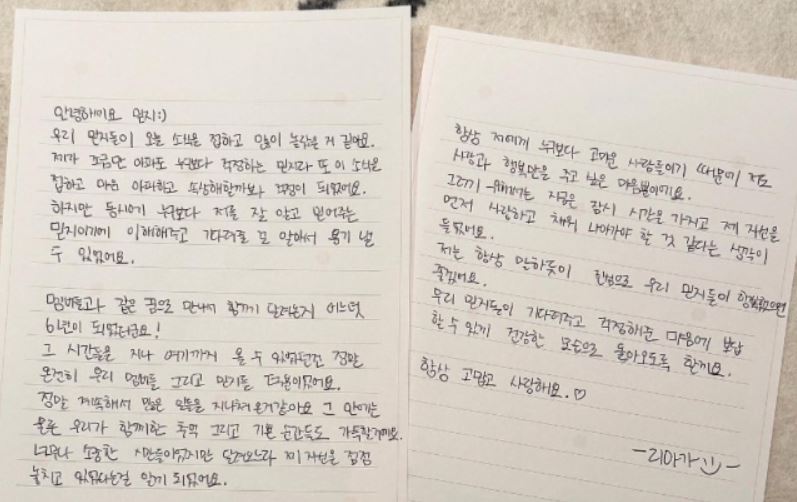 안녕하세요 믿지:)
우리 믿지들이 오늘 소식을 접하고 많이 놀랐을 거 같아요.
제가 조금만 아파도 누구보다 걱정하는 믿지라 또 이 소식을
접하고 마음 아파하고 속상해할까봐 걱정이 되었어요.
하지만 동시에 누구보다 저를 잘 알고 믿어주는
믿지이기에 이해해주고 기다려줄 걸 알아서 용기 낼
수 있었어요.
멤버들과 같은 꿈으로 만나서 함께 달려온지 어느덧
6년이 되었더라구요!
그 시간들을 지나 여기까지 올 수 있었던건 정말
온전히 우리 멤버들 그리고 믿지들 덕분이었어요.
정말 계속해서 많은 일들을 지나쳐 온거같아요 그 안에는
물론 우리가 함께한 추억 그리고 기쁜 순간들도 가득할거예요.
너무나 소중한 시간들이었지만 달려오느라 제 자신을 점점
놓치고 있었다는걸 알게 되었어요.
항상 저에게 누구보다 고마운 사람들이기 때문에 저도
사랑과 행복만을 주고 싶은 마음뿐이에요.
그러기 위해서는 지금은 잠시 시간을 가지고 제 자신을
먼저 사랑하고 채워 나아가야 할 것 같다는 생각이
들었어요.
저는 항상 말하듯이 진심으로 우리 믿지들이 행복했으면
좋겠어요.
우리 믿지들이 기다려주고 걱정해준 마음에 보답
할 수 있게 건강한 모습으로 돌아오도록 할게요.
항상 고맙고 사랑해요.♡
-리아가☺-